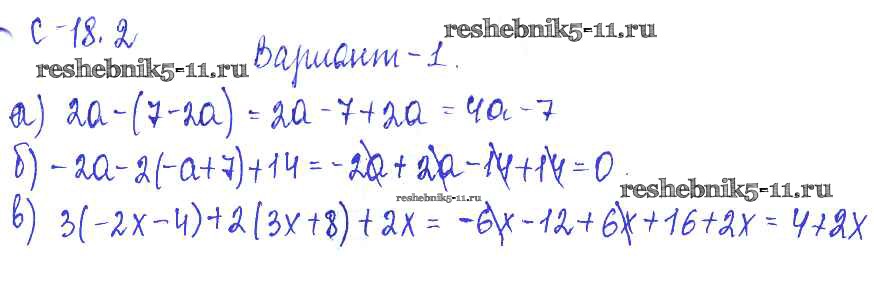 С-18.2
reshebnik5-11.ru
reshebnik5-11.ru
Вариант-1.
а) 2а-(7-2а) = 2а-7+2а = 4а-7
б) -2а-2(-а+7)+14 = -2а+2а-14+14=0
reshebnik5-11.ru
reshebnik5-11.ru
в) 3(-2х-4)+2(3х+8)+2х = -6х-12+6х+16+2х = 4+2х